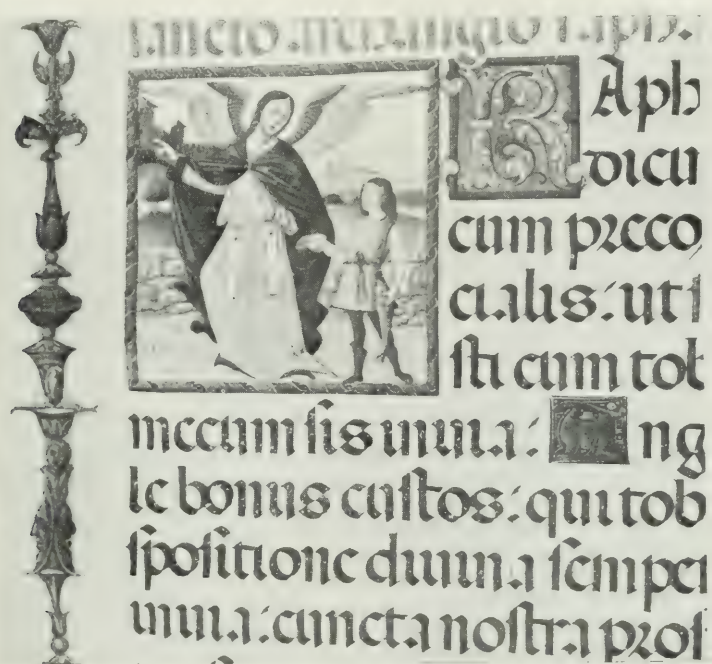 RAph
dicu
cum preco
cialis: ut i
ſti cum tob
mecum ſis in uia: Ang
le bonus cuſtos: qui tob
ſpoſitione diuina ſemper
in uia: cuncta noſtra proſ